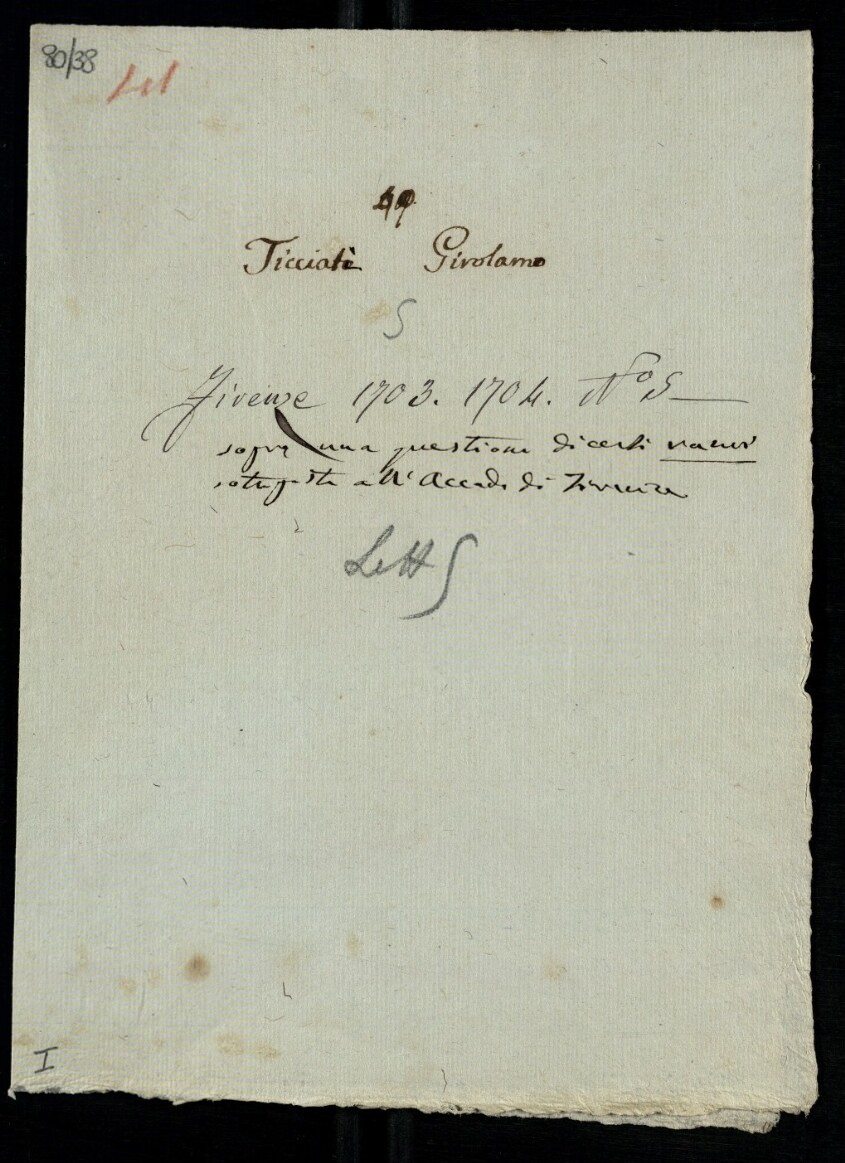 80/38
49
Ticciati Girolamo
5
Firenze 1703. 1704. Nº 5
sopra una questione di certi
all' Accadª di Firenze
Lett 5
I